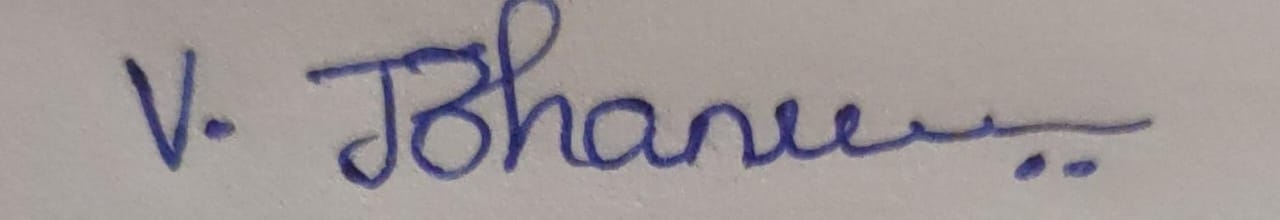 V. Johanu